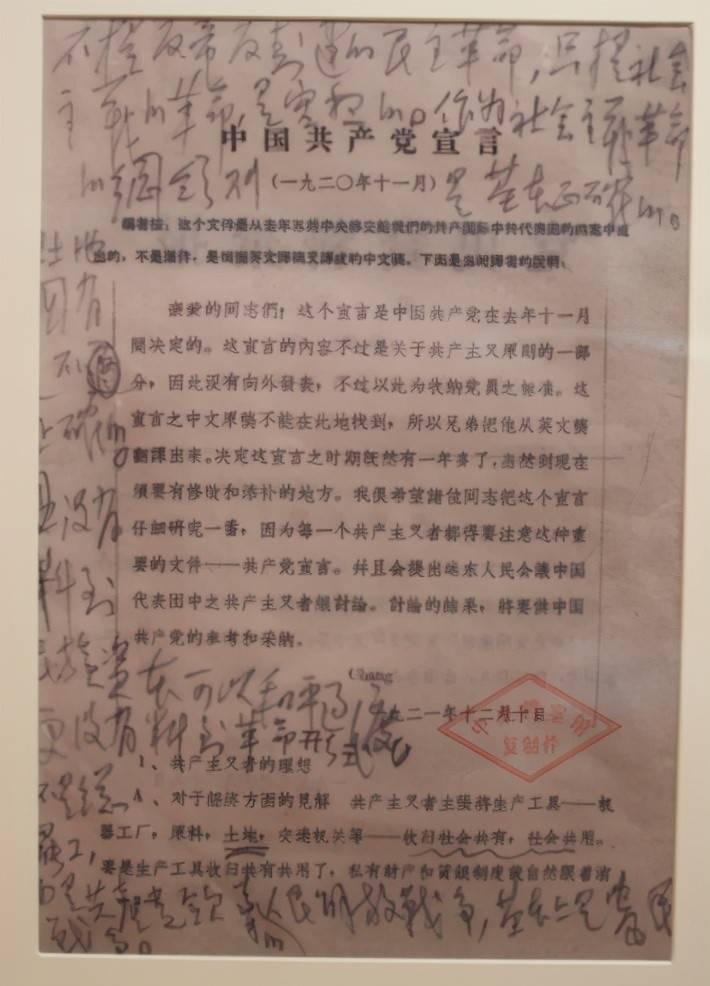 不提反帝反封建的民主革命，只提社会
主义的革命，是空想的。作为社会主义革命
的纲领则是基本正确的。
中国共产党宣言
（一九二〇年十一月）
编者按：这个文件是从去年苏共中央移交给我們的共产国际中共代表团的档案中
出的，不是原件，是
土地
国有
不
正确的。
没有
料到
民族资本可以和平过渡。
更没有料到革命形式
亲爱的同志們！这个宣言是中国共产党在去年十一月
間决定的。这宣言的內容不过是关于共产主义原則的一部
分，因此没有向外發表，不过以此为收納党員之标准。这
宣言之中文原稿不能在此地找到，所以兄弟把他从英文稿
翻譯出来。决定这宣言之时期既然有一年多了，当然到现在
須要有修改和添补的地方。我很希望諸位同志把这个宣言
仔細研究一番，因为每一个共产主义者都得要注意这种重
要的文件——共产党宣言。幷且会提出远东人民会議中国
代表团中之共产主义者組討論。討論的結果，將要供中国
共产党的参考和采納。
Chang
一九二一年十二月十日
复制件
1、共产主义者的理想
A、对于經济方面的見解　共产主义者主張將生产工具——机
器工厂，原料，土地，交通机关等——收归社会共有，社会共用。
要是生产工具收归共有共用了，私有財产和賃銀制度就自然跟着消
不是总
罢工，
而是共产党领导的人民解放战争，基本上是农民
战争。